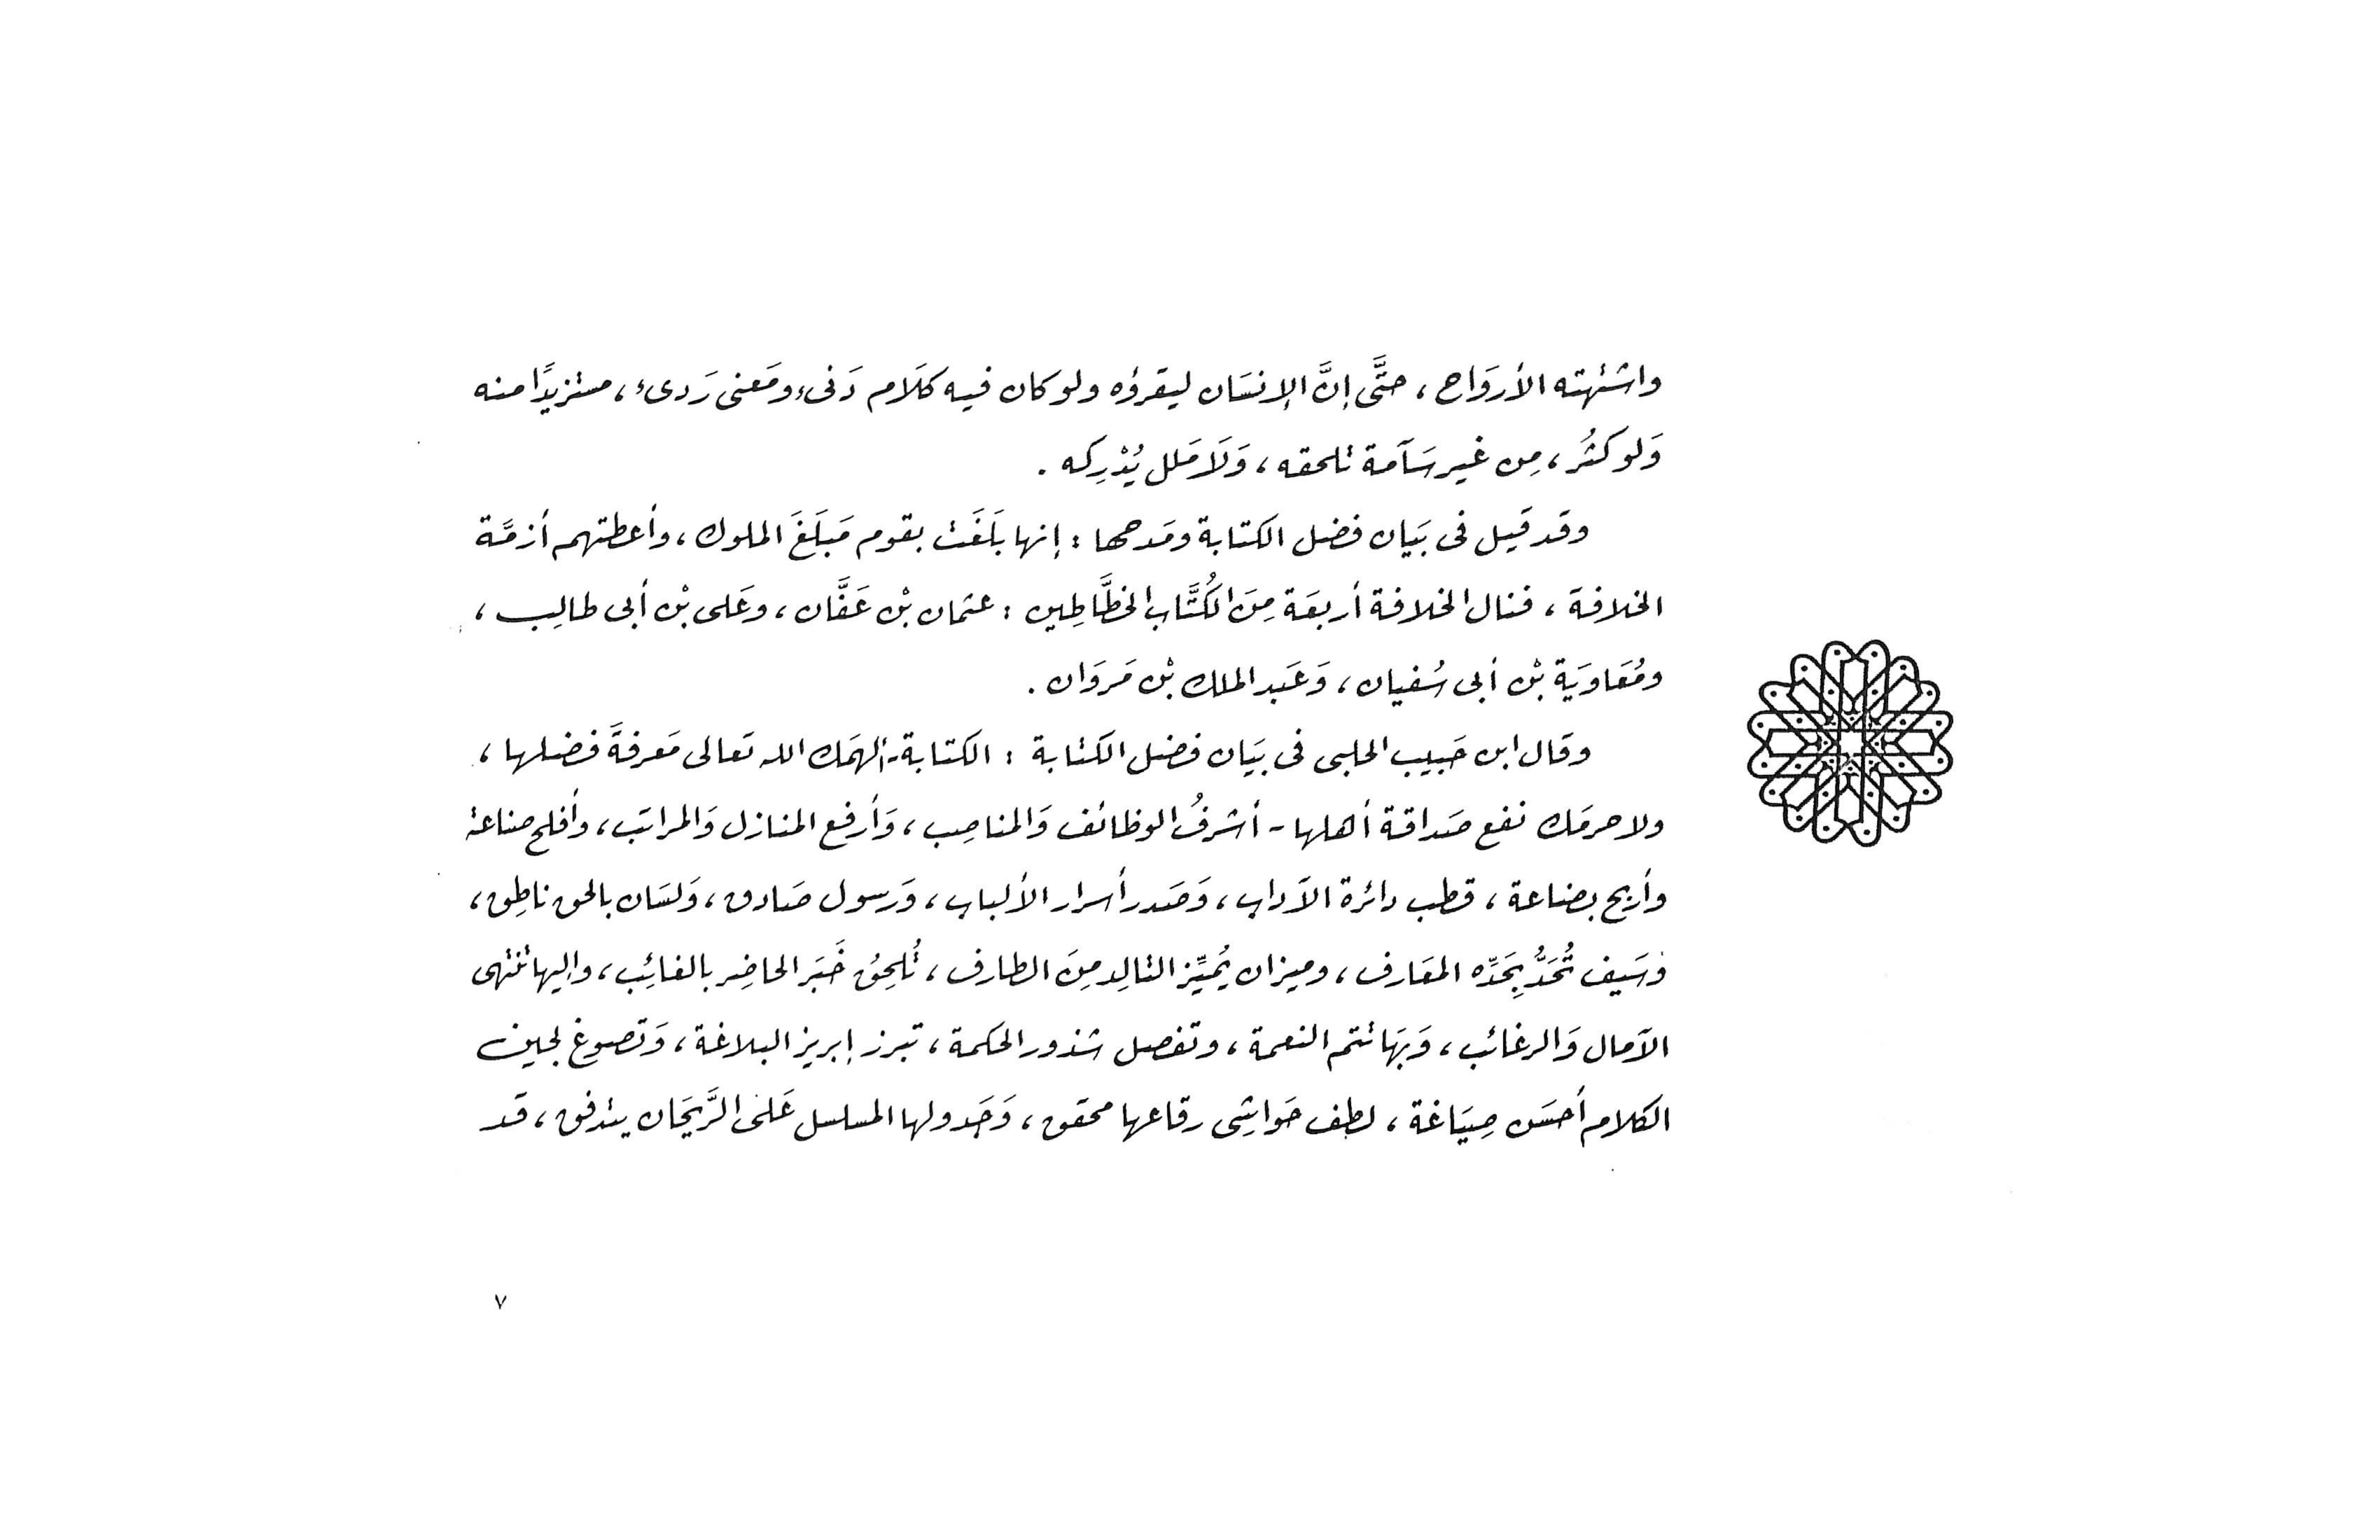 واشتهته الأروَاح، حتَّى إنَّ الإنسَان ليقرؤه ولو كان فيه كلَام دَنىء ومَعنى رَدىء، مستزيدًا منه
وَلو كثُر، مِن غير سَآمة تلحقه، وَلَا مَلل يُدْرِكه.
وقد قيل فى بَيان فضل الكتابة ومَدحها: إنها بَلَغَت بقوم مَبلَغَ الملوك، وأعطتهم أزمَّة
الخلافة، فنال الخلافة أربعَة مِنَ الكُتَّاب الخطَّاطِين: عثمان بْن عَفَّان، وعَلى بْن أبى طالِب،
ومُعَاوَيَة بْن أبى سُفيان، وَعَبد الملك بْن مَروَان.
وقال ابن حَبيب الحلبى فى بيَان فضل الكتابة: الكتابة - ألهمَك الله تعالى مَعرفةَ فضلها،
ولا حرمَك نفع صَداقة أهلها - أشرفُ الوظائف وَالمناصِب، وَأرفع المنازل وَالمراتَب، وأفلح صناعة
وأربح بضاعة، قطب دائرة الآداب، وَصَدر أسرار الألباب، وَرسول صَادق، وَلسَان بالحق ناطِق،
وسَيف تُحَدُّ بِحَدِّه المعَارف، وميزان يُميِّز التالِد مِنَ الطارف، تُلحِق خَبَر الحاضِر بالغائِب، وإليها تنتهى
الآمال وَالرغائب، وَبهَا تتم النعمة، وتفصل شذور الحكمة، تبرز إبريز البلاغة، وَتصوغ لجين
الكلام أحسَن صِيَاغة، لطف حَواشِى رقاعها محقق، وَجَدولها المسلسل عَلى الرَّيحَان يتدفق، قد
٧